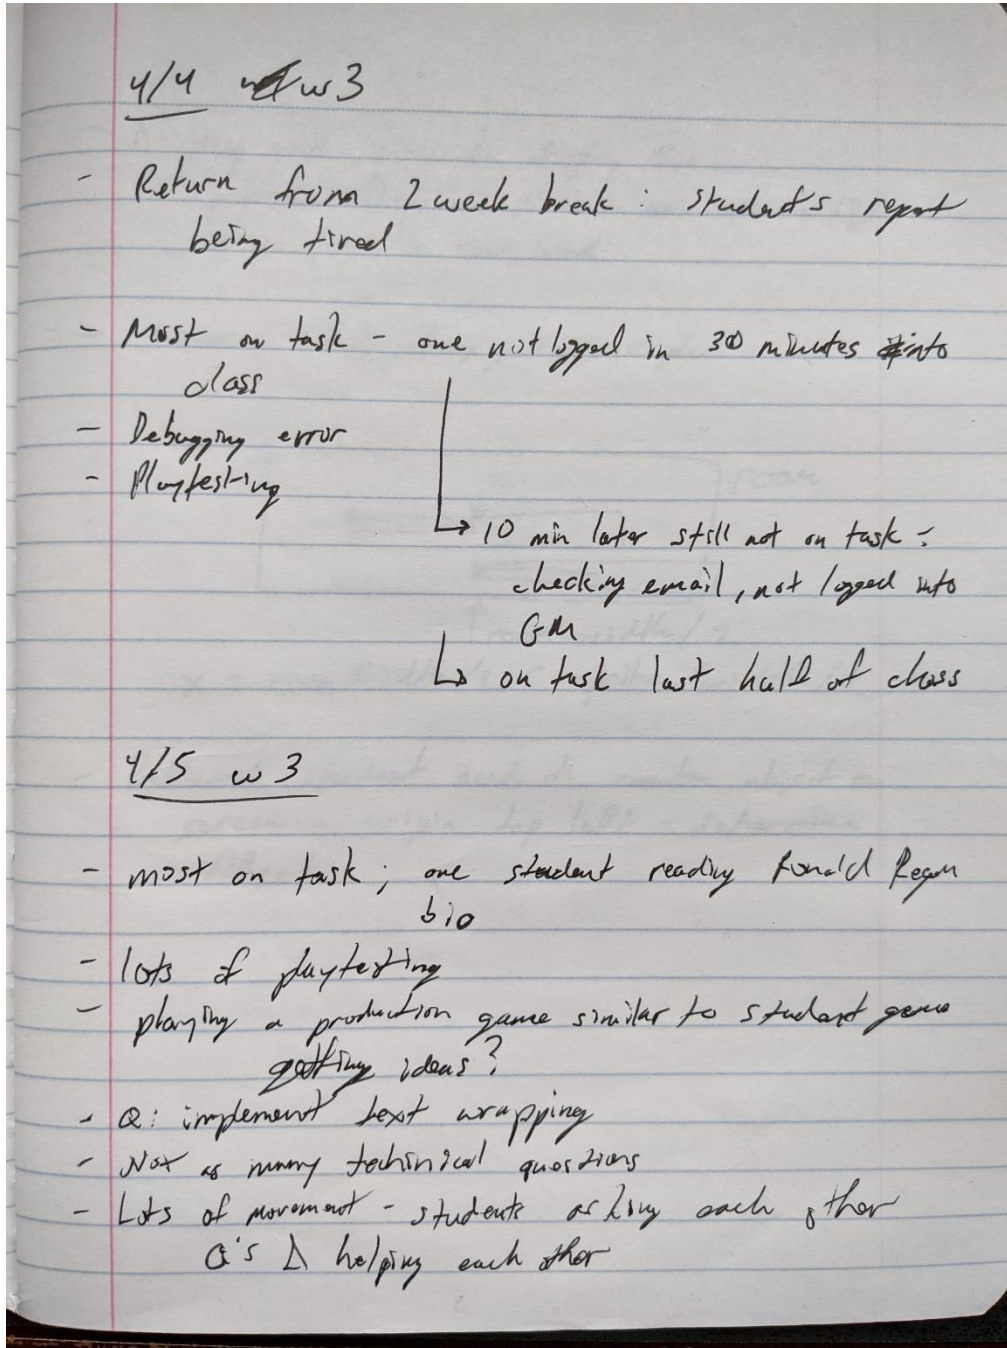 4/4 w3
- Return from 2 week break : student's report
being tired
- Most on task - one not logged in 30 minutes into
class
- Debugging error
- Playtesting
↳ 10 min later still not on task :
checking email, not logged into
GM
↳ on task last half of class
4/5 w3
- most on task ; one student reading Ronald Regan
bio
- lots of playtesting
- playing a production game similar to student game
getting ideas?
- Q: implement text wrapping
- Not as many techinical questions
- Lots of movement - students asking each other
Q's & helping each other